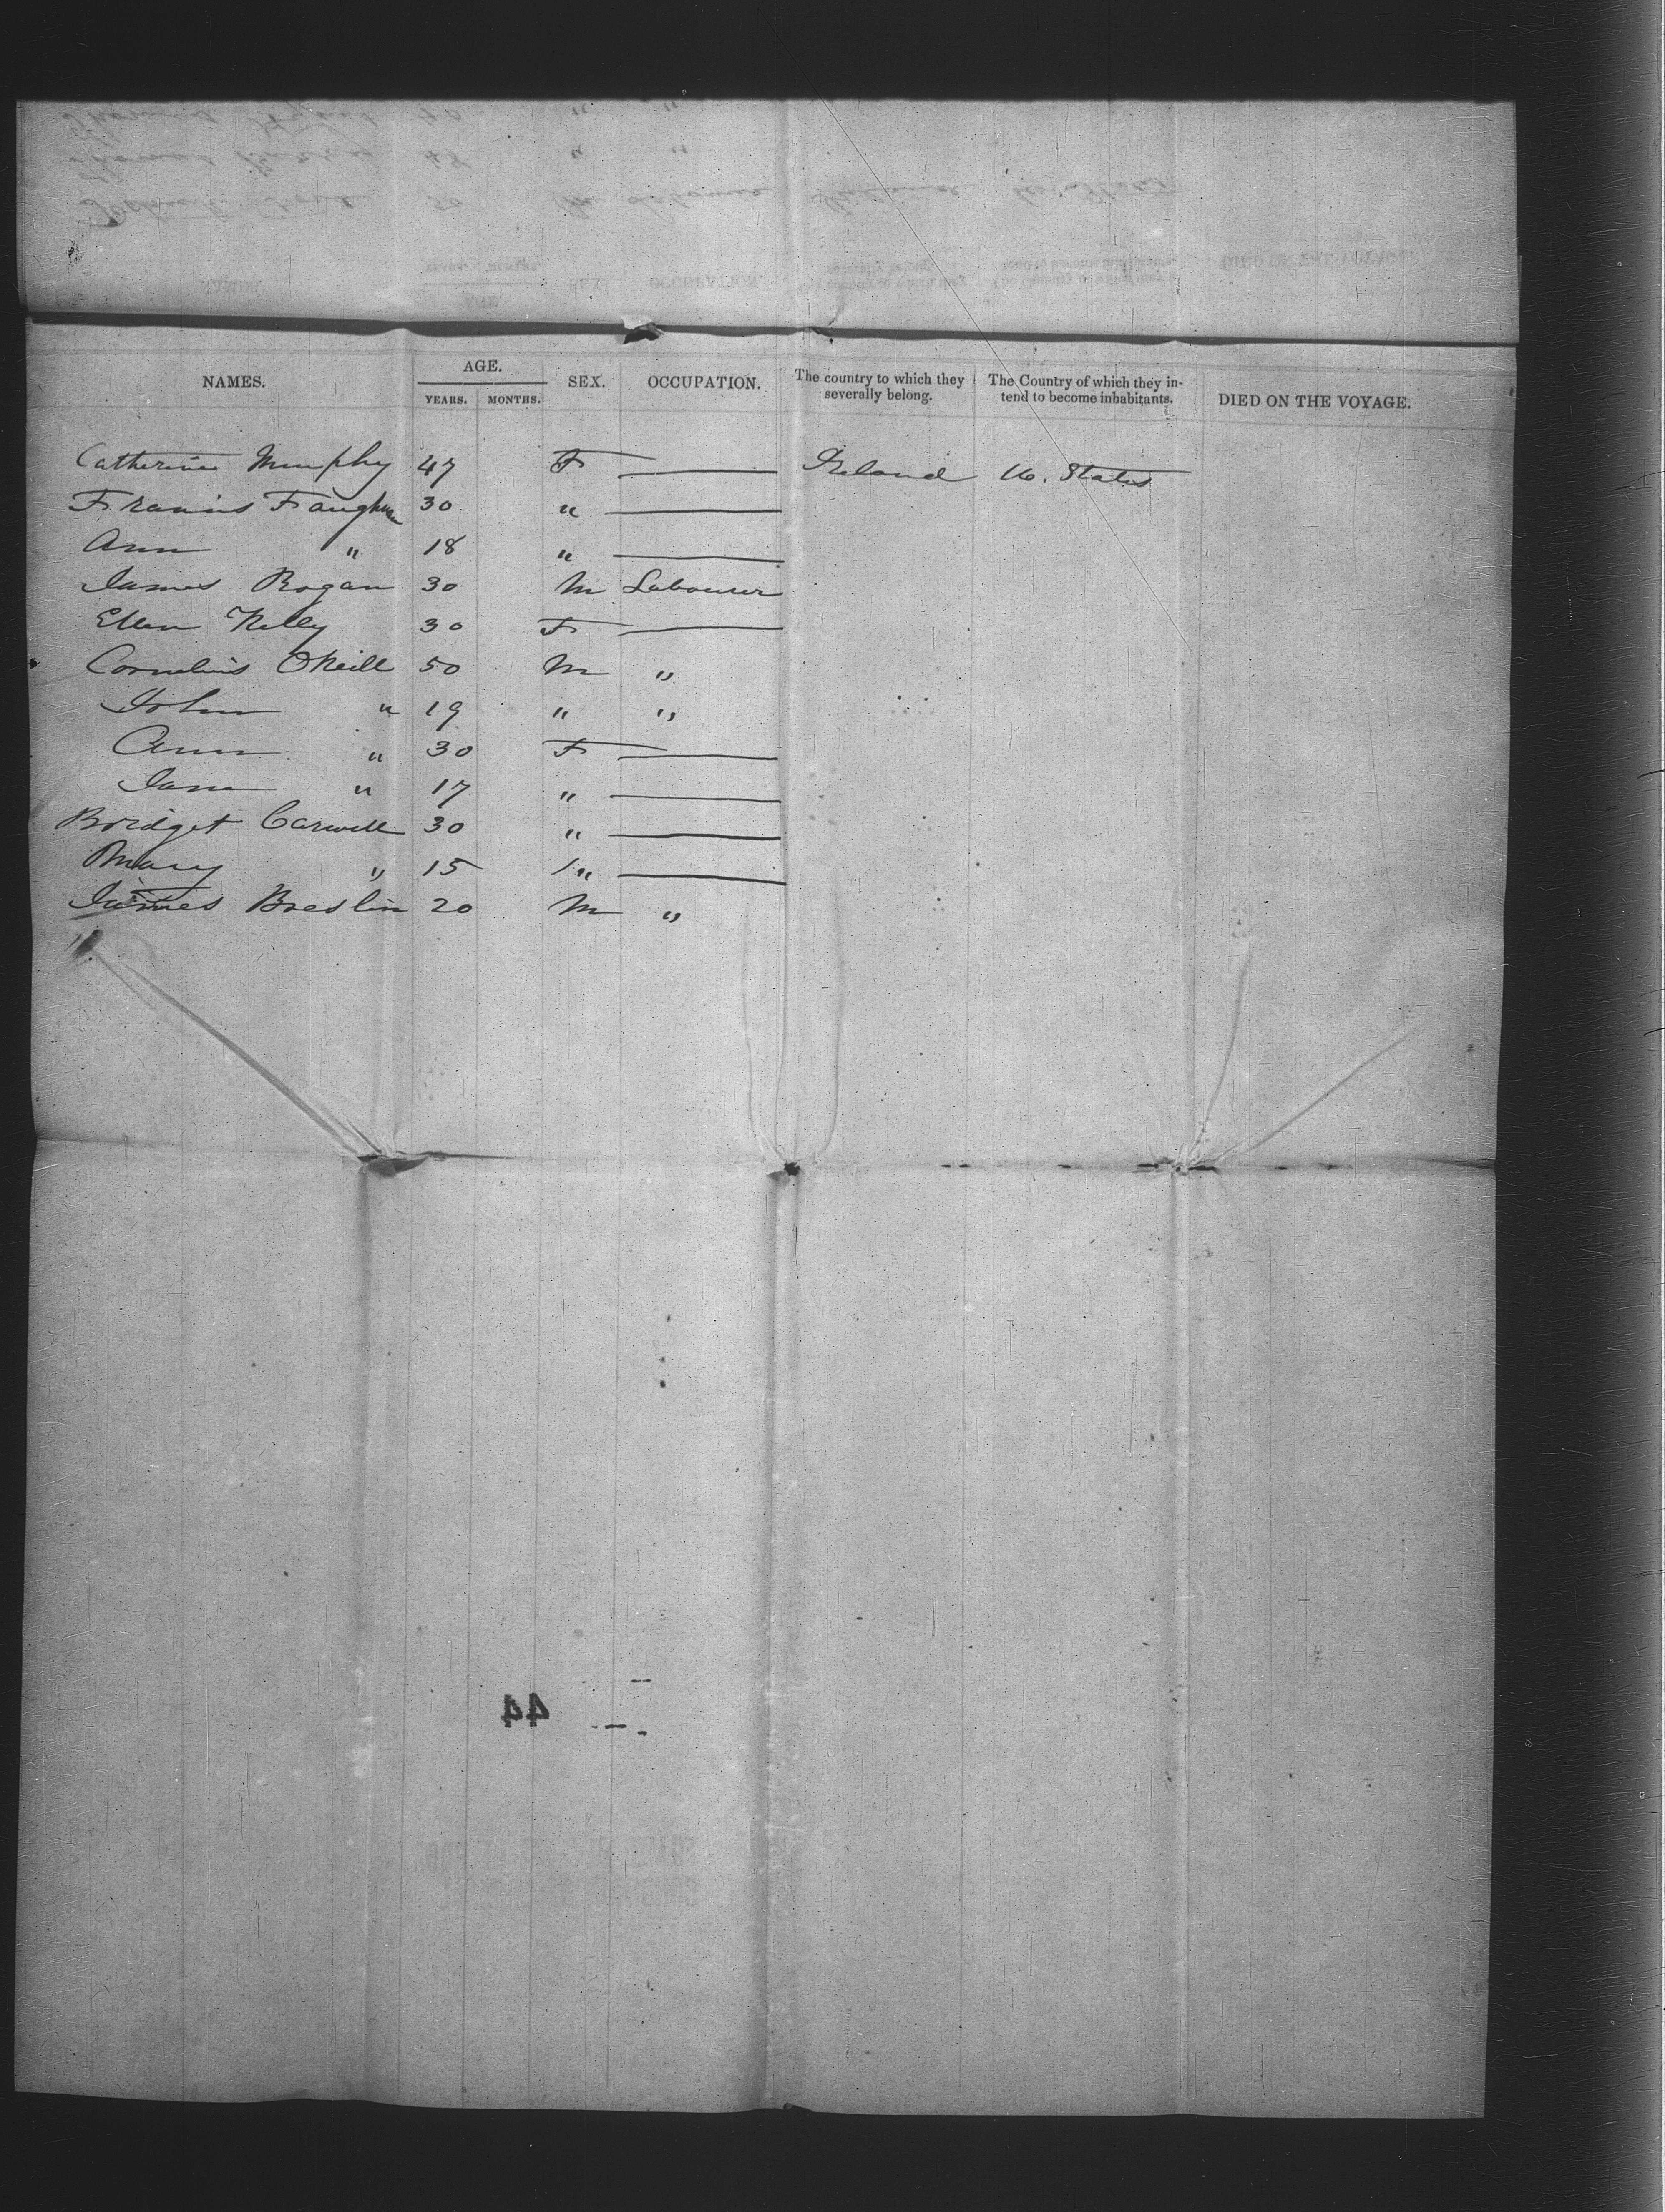 NAMES. AGE. YEARS. MONTHS. SEX. OCCUPATION. The country to which they severally belong. The Country of which they intend to become inhabitants. DIED ON THE VOYAGE.
Catherine Murphy 47 F — Ireland U. States
Francis 30 " —
Ann " 18 " —
James Rogan 30 M Labourer
Ellen Kelly 30 F —
Cornelius O'Neill 50 M "
John " 19 " "
Ann " 30 F —
Jane " 17 " —
Bridget Carwell 30 " —
Mary " 15 " —
James Breslin 20 M "
44